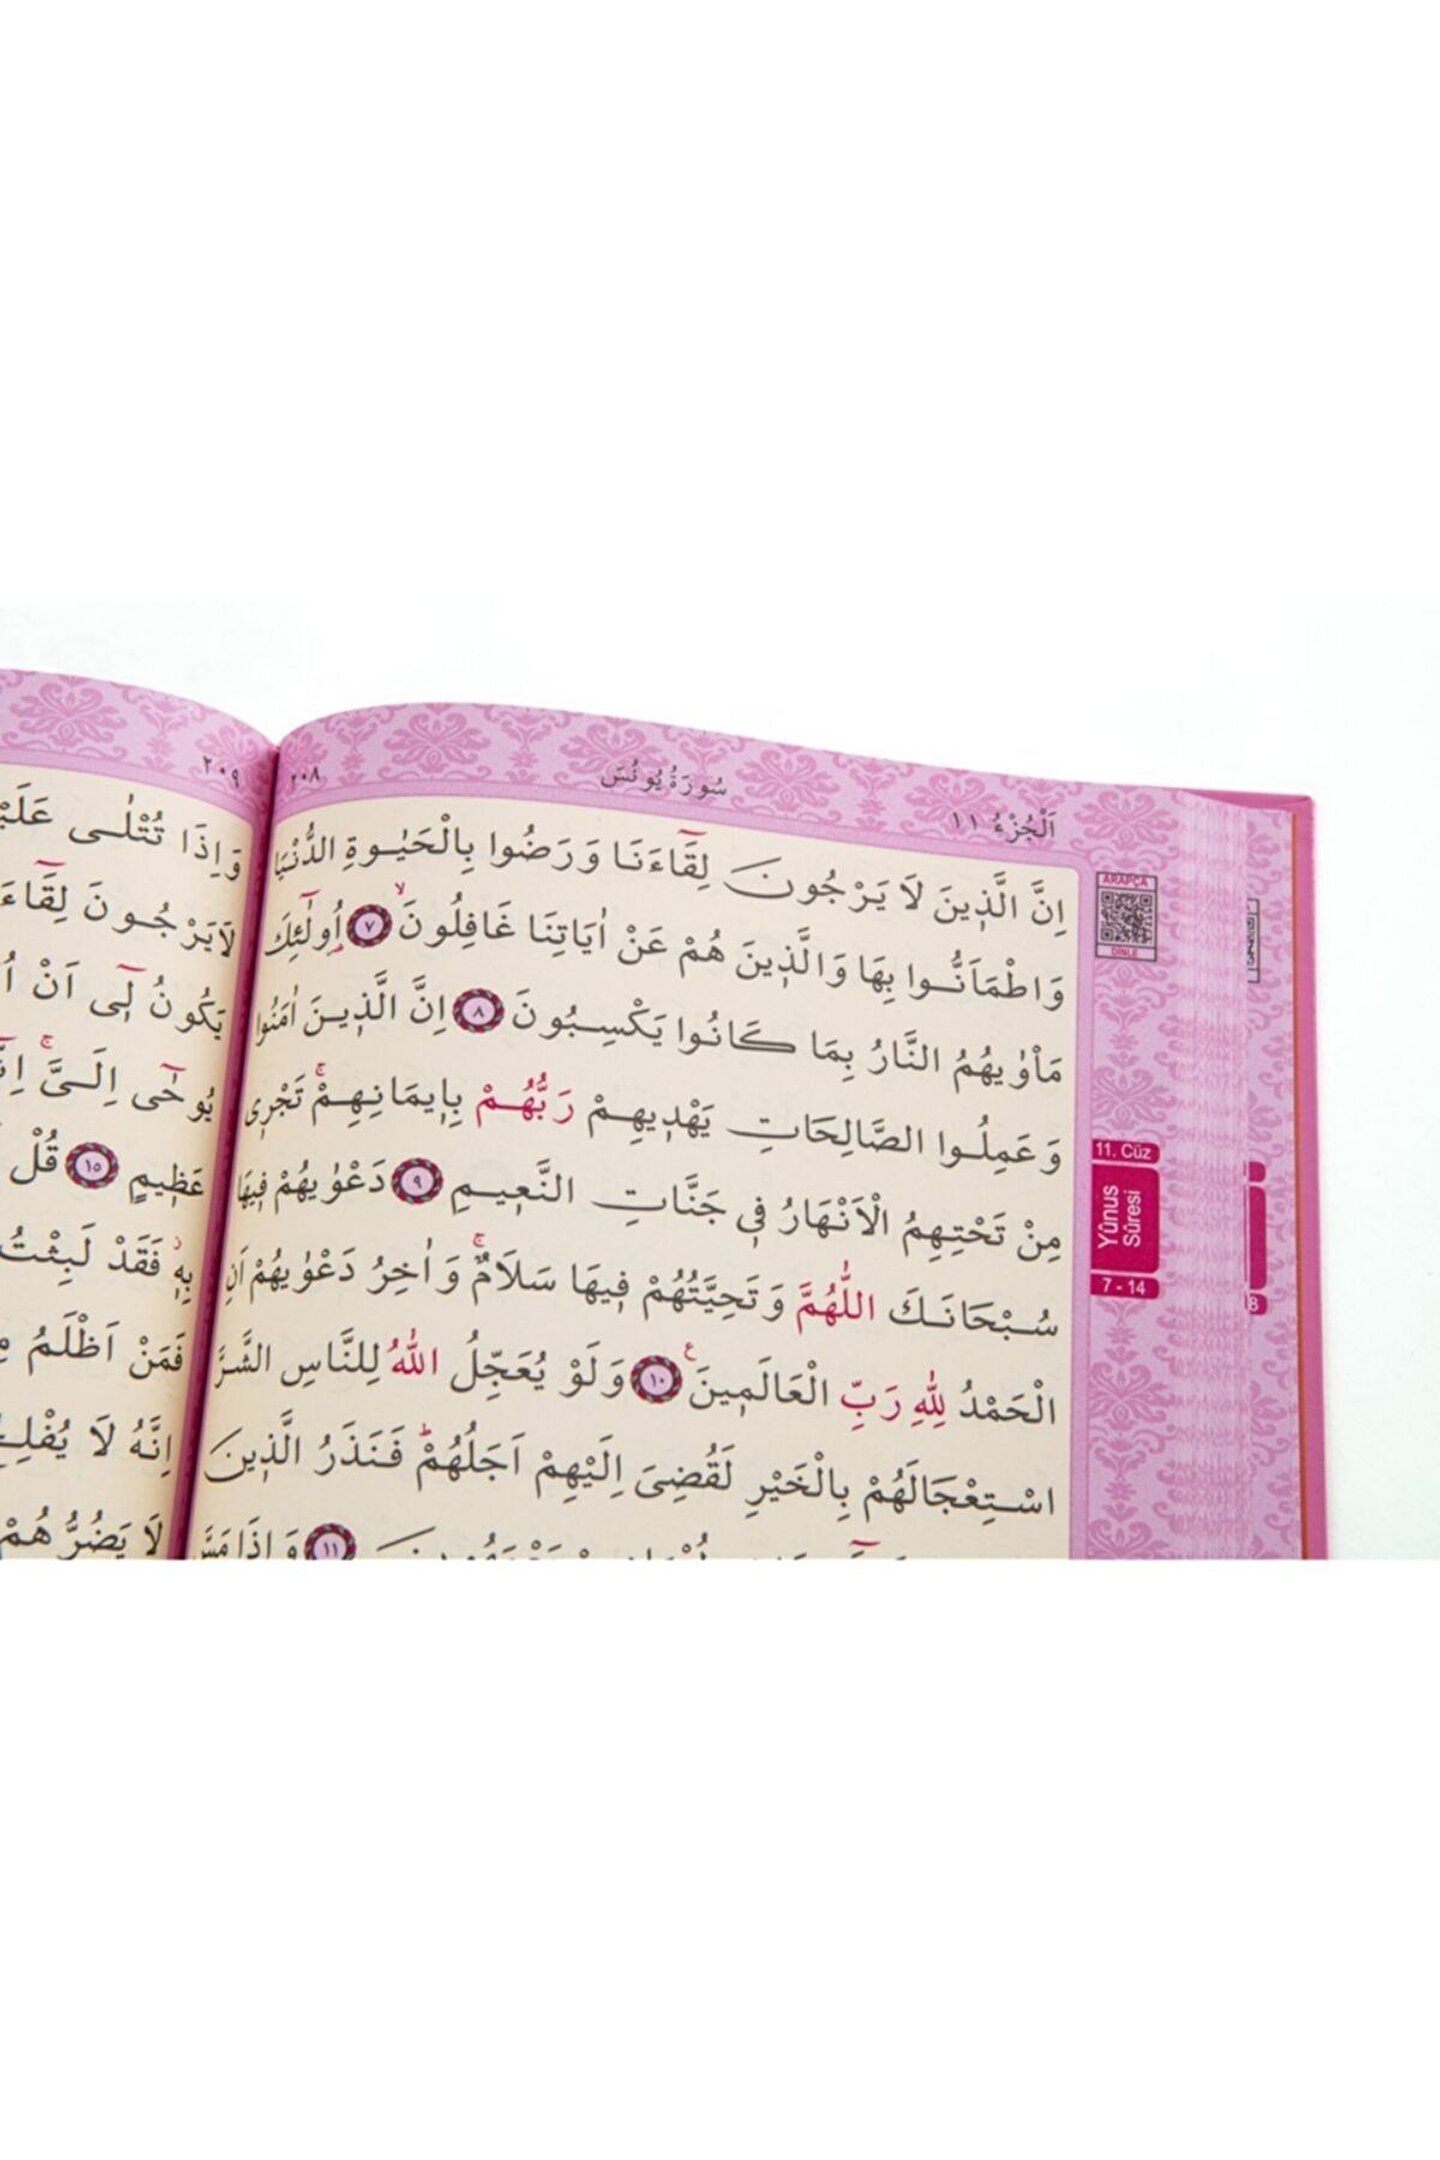 سُورَةُ يُونُسَ
اَلْجُزْءُ ١١
٢٠٨
اِنَّ الَّذ۪ينَ لَا يَرْجُونَ لِقَٓاءَنَا وَرَضُوا بِالْحَيٰوةِ الدُّنْيَا
وَاطْمَاَنُّوا بِهَا وَالَّذ۪ينَ هُمْ عَنْ اٰيَاتِنَا غَافِلُونَۙ ﴿٧﴾ اُو۬لٰٓئِكَ
مَأْوٰيهُمُ النَّارُ بِمَا كَانُوا يَكْسِبُونَ ﴿٨﴾ اِنَّ الَّذ۪ينَ اٰمَنُوا
وَعَمِلُوا الصَّالِحَاتِ يَهْد۪يهِمْ رَبُّهُمْ بِا۪يمَانِهِمْۚ تَجْر۪ي
مِنْ تَحْتِهِمُ الْاَنْهَارُ ف۪ي جَنَّاتِ النَّع۪يمِ ﴿٩﴾ دَعْوٰيهُمْ ف۪يهَا
سُبْحَانَكَ اللّٰهُمَّ وَتَحِيَّتُهُمْ ف۪يهَا سَلَامٌۚ وَاٰخِرُ دَعْوٰيهُمْ اَنِ
الْحَمْدُ لِلّٰهِ رَبِّ الْعَالَم۪ينَ۟ ﴿١٠﴾ وَلَوْ يُعَجِّلُ اللّٰهُ لِلنَّاسِ الشَّرَّ
اسْتِعْجَالَهُمْ بِالْخَيْرِ لَقُضِيَ اِلَيْهِمْ اَجَلُهُمْۜ فَنَذَرُ الَّذ۪ينَ
﴿١١﴾ وَاِذَا مَسَّ
ARAPÇA
DİNLE
11. Cüz
Yûnus
Sûresi
7 - 14
٢٠٩
وَاِذَا تُتْلٰى
لَا يَرْجُونَ
يَكُونُ ل۪ٓي اَنْ
يُوحٰٓى اِلَيَّۚ
عَظ۪يمٍ ﴿١٥﴾ قُلْ
بِه۪ۘ فَقَدْ لَبِثْتُ
فَمَنْ اَظْلَمُ
اِنَّهُ لَا
لَا يَضُرُّهُمْ